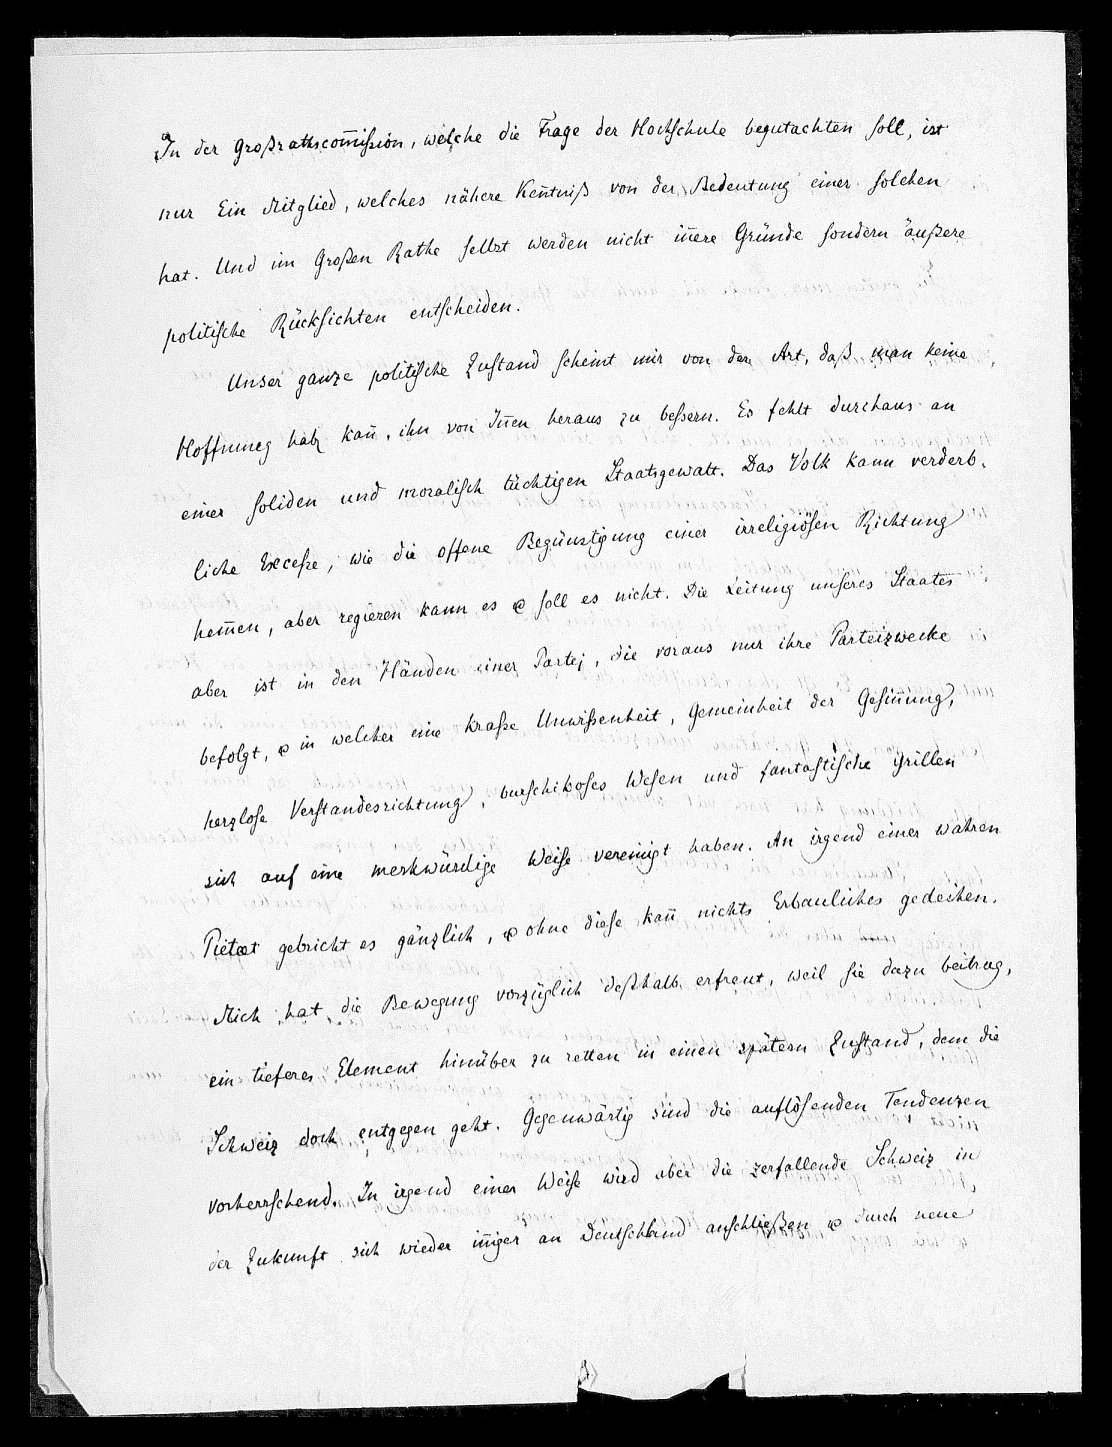 In der Großrathscom̅ißion, welche die Frage der Hochschule begutachten soll, ist
nur Ein Mitglied, welches nähere Ken̅tniß von der Bedeutung einer solchen
hat. Und im Großen Rathe selbst werden nicht in̅ere Gründe sondern äußere
politische Rücksichten entscheiden.
Unser ganze politische Zustand scheint mir von der Art, daß man keine
Hoffnung haben kan̅, ihn von In̅en heraus zu beßern. Es fehlt durchaus an
einer soliden und moralisch tüchtigen Staatsgewalt. Das Volk kann verderb-
liche Exceße, wie die offene Begünstigung einer irreligiösen Richtung
hem̅en, aber regieren kann es & soll es nicht. Die Leitung unseres Staates
aber ist in den Händen einer Partej, die voraus nur ihre Parteizwecke
befolgt, & in welcher eine kraße Unwißenheit, Gemeinheit der Gesin̅ung,
herzlose Verstandesrichtung, burschikoses Wesen und fantastische Grillen
sich auf eine merkwürdige Weise vereinigt haben. An irgend einer wahren
Pietæt gebricht es gänzlich, & ohne diese kan̅ nichts Erbauliches gedeihen.
Mich hat die Bewegung vorzüglich deßhalb erfreut, weil sie dazu beitrug,
ein tieferes Element hinüber zu retten in einen spätern Zustand, dem die
Schweiz doch entgegen geht. Gegenwärtig sind die auflösenden Tendenzen
vorherrschend. In irgend einer Weise wird aber die zerfallende Schweiz in
der Zukunft sich wieder in̅iger an Deutschland anschließen & durch neue